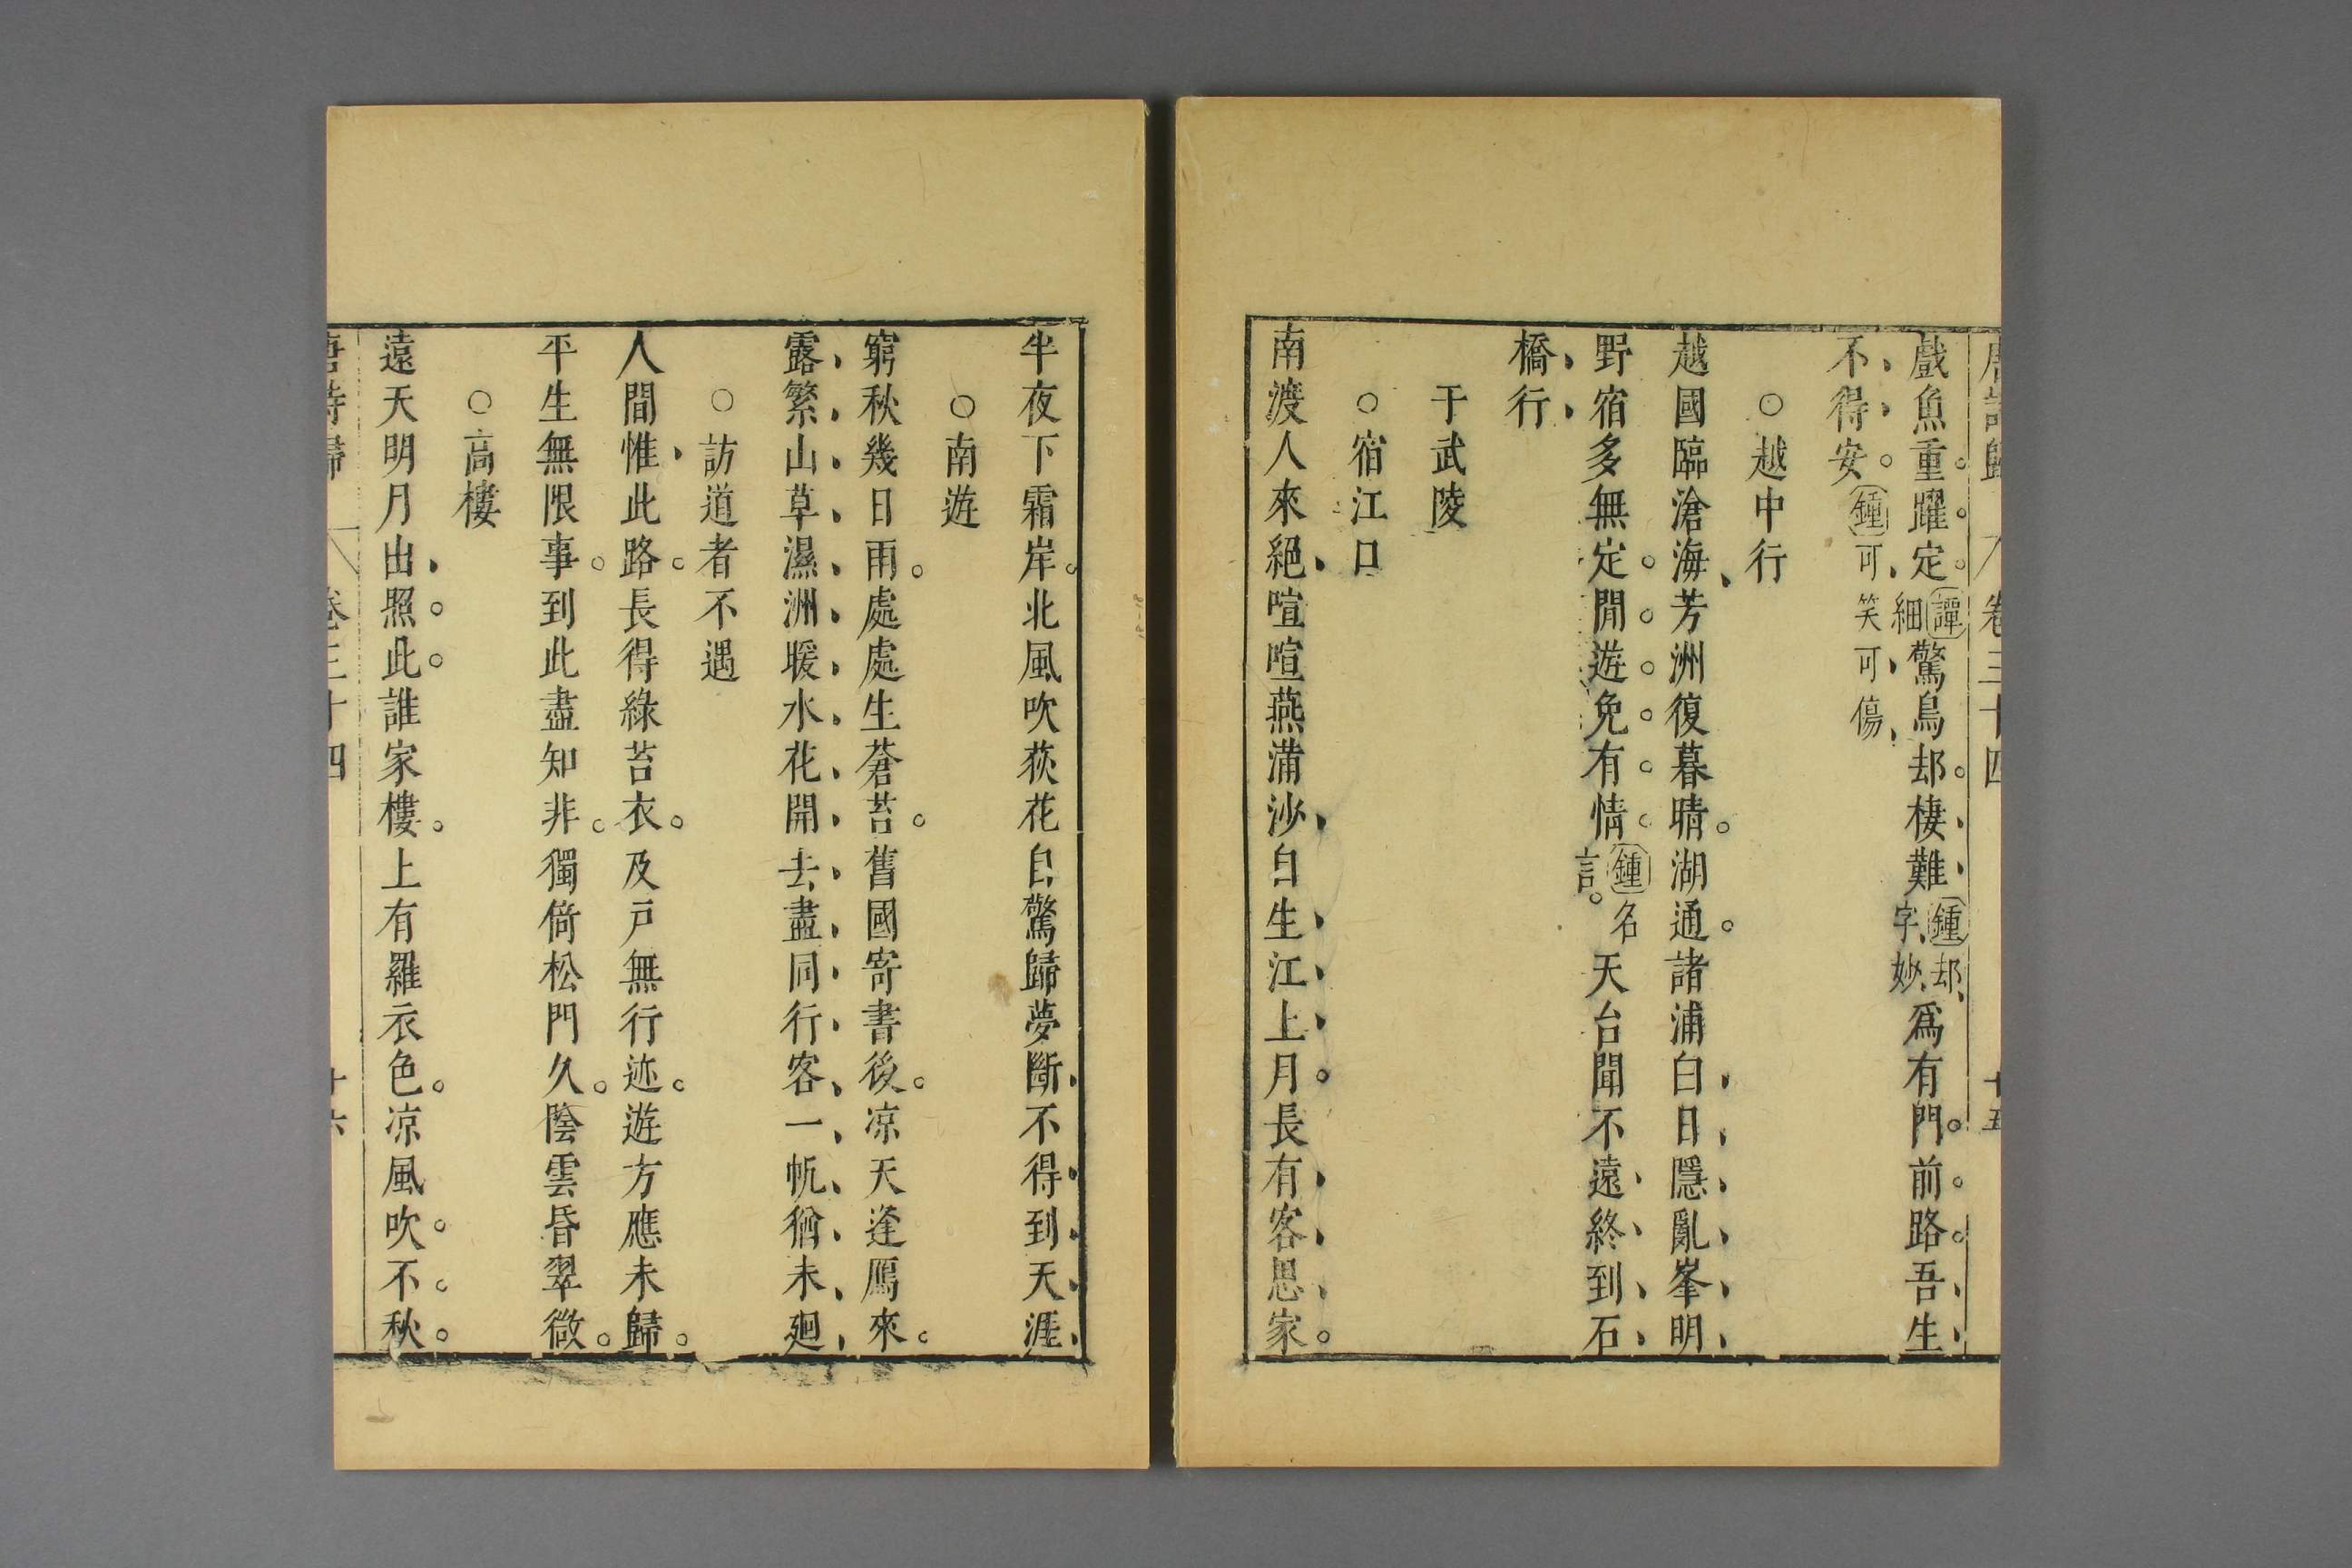 唐詩歸 卷三十四 十五
戲魚重躍定。譚細驚鳥却。棲難鍾却字妙爲有門。前路。吾生
不得安。鍾可笑可傷
○越中行
越國臨滄海芳洲復暮晴。湖通。諸浦白日隱亂峯明
野宿多無定。閒。遊。免。有。情。鍾名言。天台聞不遠終到石
橋行
于武陵
○宿江口
南渡人來絕喧喧燕蒲沙白生江上月。長有客思家。
半夜下霜岸。北風吹荻花自驚歸夢斷不得到天涯
○南遊
窮秋幾日雨。處處生蒼苔。舊國寄書後。凉天逢鴈來。
露繁山草濕洲暖水花開去盡同行客一帆猶未廻
○訪道者不遇
人間惟此路。長得綠苔衣。及戸無行迹。遊方應未歸。
平生無限事。到此盡知非。獨倚松門久。陰雲昏翠微。
○高樓
遠天明月出照。此。誰家樓。上有羅衣色。凉風吹。不。秋。
唐詩歸 卷三十四 十六